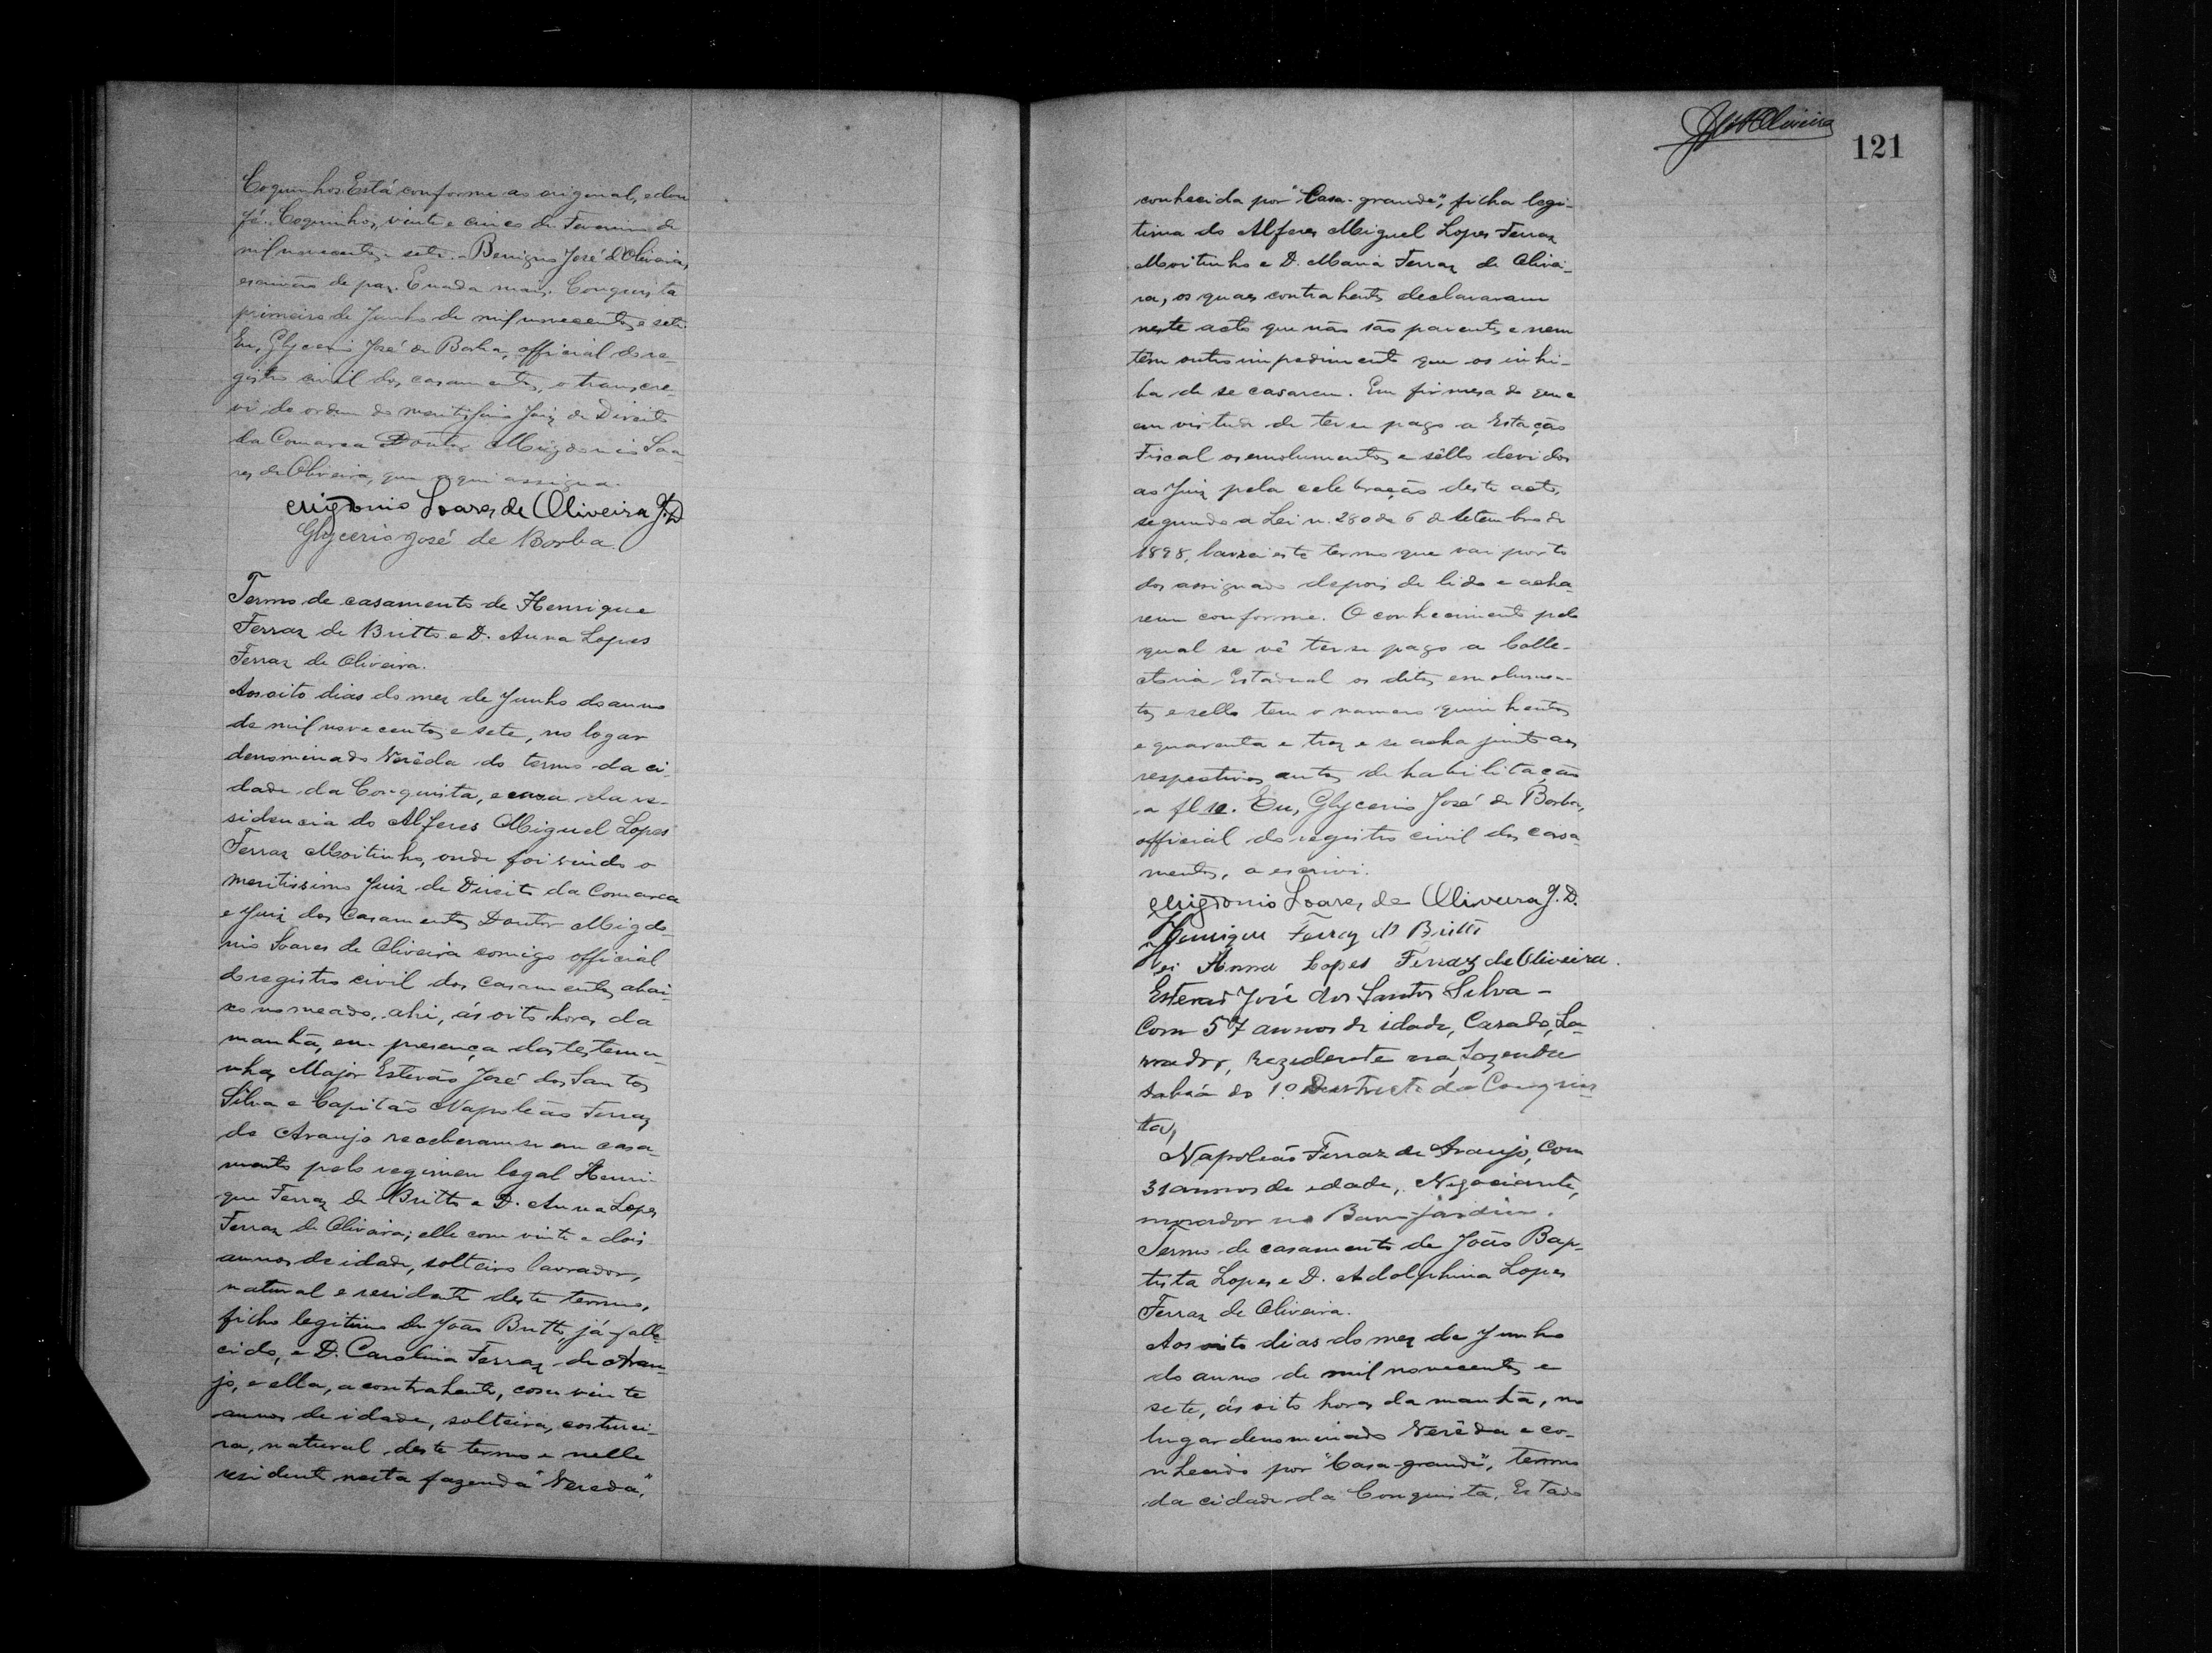 Coquinhos Está conforme ao original, e dou
fé. Coquinhos, vinte e cinco de Fevereiro de
mil novecentos e sete. - Benigno José d'Oliveira,
escrivão de paz. E nada mais. Conquista
primeiro de Junho de mil novecentos e sete.
Eu, Glycerio José de Borba, official do re-
gistro civil dos casamentos, o transcre-
vi de ordem do meritissimo Juiz de Direito
da Comarca Doutor Migdonio Soa-
res de Oliveira, que aqui assigna.
Migdonio Soares de Oliveira J. D
Glycerio José de Borba.
Termo de casamento de Henrique
Ferraz de Britto e D. Anna Lopes
Ferraz de Oliveira.
Aos oito dias do mez de Junho do anno
de mil novecentos e sete, no logar
denominado Verêda do termo da ci-
dade da Conquista, e casa da re-
sidencia do Alferes Miguel Lopes
Ferraz Moitinho, onde foi vindo o
meritissimo Juiz de Direito da Comarca
e Juiz dos Casamentos Doutor Migdo-
nio Soares de Oliveira comigo official
do registro civil dos casamentos abai-
xo nomeado, ahi, ás oito horas da
manhã, em presença das testemu-
nhas Major Estevão José dos Santos
Silva e Capitão Napoleão Ferraz
de Araujo receberam-se em casa-
mento pelo regimen legal Henri-
que Ferraz de Britto e D. Anna Lopes
Ferraz de Oliveira; elle com vinte e dois
annos de idade, solteiro lavrador,
natural e residente deste termo,
filho legitimo de João Britto, já falle-
cido, e D. Carolina Ferraz de Arau-
jo, e ella, a contrahente, com vinte
annos de idade, solteira, costurei-
ra, natural deste termo e nelle
residente nesta fazenda "Vereda,"
121
conhecida por "Casa-grande", filha legi-
tima do Alferes Miguel Lopes Ferraz
Moitinho e D. Maria Ferraz de Olivei-
ra, os quaes contrahentes declararam
neste acto que não são parentes e nem
têm outro impedimento que os inhi-
ba de se casarem. Em firmesa do que e
em virtude de ter se pago a Estação
Fiscal os emolumentos e sêllo devidos
ao Juiz pela celebração deste acto,
segundo a Lei n. 280 de 6 de Setembro de
1898, lavrei este termo que vai por to
dos assignado depois de lido e acha-
rem conforme. O conhecimento pelo
qual se vê ter se pago a Colle-
ctoria Estadual os ditos emolumen-
tos e sello tem o numero quinhentos
e quarenta e trez e se acha junto aos
respectivos autos de habilitação
a fl 12. Eu, Glycerio José de Borba,
official do registro civil dos casa-
mentos, o escrivi.
Migdonio Soares de Oliveira J. D.
Henrique Ferraz de Britto
Anna Lopes Ferraz de Oliveira.
Estevão José dos Santos Silva -
Com 57 annos de idade, Casado, La-
vrador, Rezidente na fazenda
Sabiá do 1º. Destricto da Conquis-
ta,
Napoleão Ferraz de Araujo, Com
31 annos de edade, Negociante,
morador no Bom-jardim.
Termo de casamento de João Bap-
tista Lopes e D. Adolphina Lopes
Ferraz de Oliveira.
Aos oito dias do mez de Junho
do anno de mil novecentos e
sete, ás oito horas da manhã, no
lugar denominado Verêda e co-
nhecido por "Casa-grande", termo
da cidade da Conquista, Estado